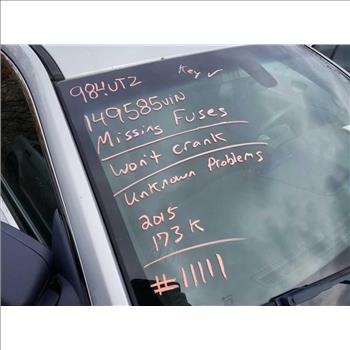 984UTZ Key ✓
149585VIN
Missing Fuses
Won't crank
Unknown Problems
2015
173K
#11111